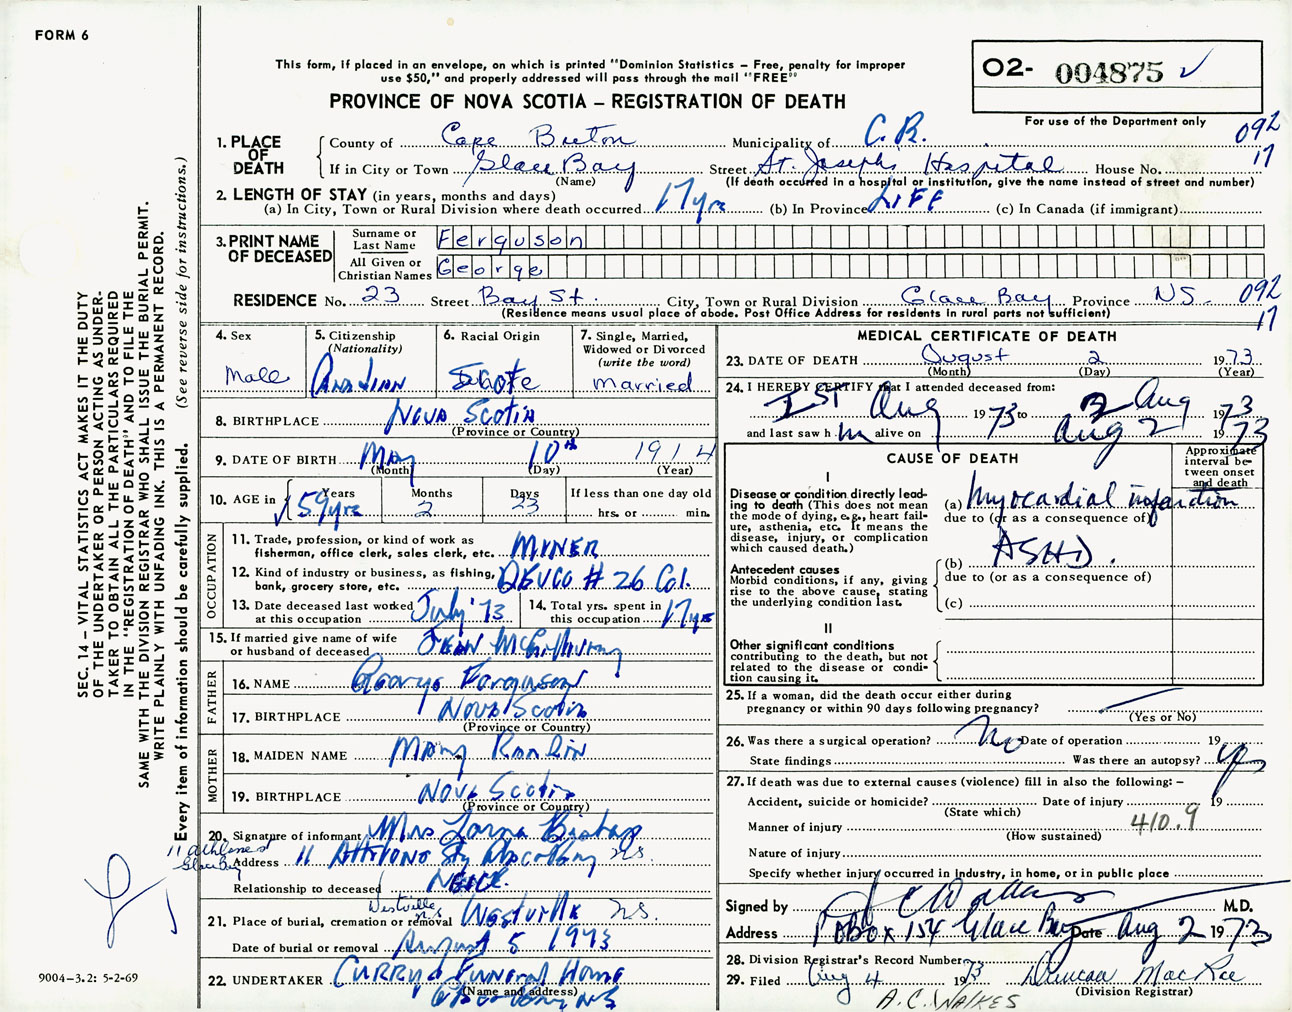 FORM 6
This form, if placed in an envelope, on which is printed "Dominion Statistics – Free, penalty for improper
use $50," and properly addressed will pass through the mail "FREE"
PROVINCE OF NOVA SCOTIA – REGISTRATION OF DEATH
O2- 004875 ✓
For use of the Department only
092
17
1. PLACE OF DEATH
County of Cape Breton Municipality of C.B.
If in City or Town Glace Bay Street St. Joseph's Hospital House No.
(Name) (If death occurred in a hospital or institution, give the name instead of street and number)
2. LENGTH OF STAY (in years, months and days)
(a) In City, Town or Rural Division where death occurred 17 yrs (b) In Province LIFE (c) In Canada (if immigrant)
3. PRINT NAME OF DECEASED
Surname or Last Name Ferguson
All Given or Christian Names George
RESIDENCE No. 23 Street Bay St. City, Town or Rural Division Glace Bay Province NS. 092
17
(Residence means usual place of abode. Post Office Address for residents in rural parts not sufficient)
4. Sex
Male
5. Citizenship
(Nationality)
6. Racial Origin
7. Single, Married,
Widowed or Divorced
(write the word)
married
8. BIRTHPLACE Nova Scotia
(Province or Country)
9. DATE OF BIRTH May 10th 1914
(Month) (Day) (Year)
10. AGE in Years Months Days If less than one day old
59 yrs 2 23 hrs. or min.
OCCUPATION
11. Trade, profession, or kind of work as
fisherman, office clerk, sales clerk, etc. MYNER
12. Kind of industry or business, as fishing,
bank, grocery store, etc. DEVCO # 26 Col.
13. Date deceased last worked
at this occupation July '73
14. Total yrs. spent in
this occupation 17 yrs
15. If married give name of wife
or husband of deceased Jean McGillivray
FATHER
16. NAME George Ferguson
17. BIRTHPLACE Nova Scotia
(Province or Country)
MOTHER
18. MAIDEN NAME Mary Rankin
19. BIRTHPLACE Nova Scotia
(Province or Country)
20. Signature of informant Mrs Lorna Bishop
11
Glace Bay
Address 11 N.S.
Relationship to deceased
Westville
N.S.
21. Place of burial, cremation or removal Westville N.S.
Date of burial or removal August 5 1973
22. UNDERTAKER Curry's Funeral Home
(Name and address)
Glace Bay NS
MEDICAL CERTIFICATE OF DEATH
23. DATE OF DEATH August 2 1973
(Month) (Day) (Year)
24. I HEREBY CERTIFY that I attended deceased from:
1ST Aug 1973 to 2 Aug 1973
and last saw him alive on Aug 2 1973
CAUSE OF DEATH
Approximate
interval be-
tween onset
and death
I
Disease or condition directly lead-
ing to death (This does not
mean the mode of dying, e.g., heart fail-
ure, asthenia, etc. It means the
disease, injury, or complication
which caused death.)
(a) Myocardial infarction
due to (or as a consequence of)
(b) ASHD.
due to (or as a consequence of)
(c)
Antecedent causes
Morbid conditions, if any, giving
rise to the above cause, stating
the underlying condition last.
II
Other significant conditions
contributing to the death, but not
related to the disease or condi-
tion causing it.
25. If a woman, did the death occur either during
pregnancy or within 90 days following pregnancy?
(Yes or No)
26. Was there a surgical operation? No Date of operation 19
State findings Was there an autopsy?
27. If death was due to external causes (violence) fill in also the following: –
Accident, suicide or homicide? Date of injury 19
(State which)
Manner of injury 410.9
(How sustained)
Nature of injury
Specify whether injury occurred in industry, in home, or in public place
Signed by M.D.
Address PO Box 154 Glace Bay Date Aug 2 1973
28. Division Registrar's Record Number
29. Filed Aug 4 1973 Duncan MacRae
(Division Registrar)
A.C. WALKES
SEC. 14 – VITAL STATISTICS ACT MAKES IT THE DUTY
OF THE UNDERTAKER OR PERSON ACTING AS UNDER-
TAKER TO OBTAIN ALL THE PARTICULARS REQUIRED
IN THE "REGISTRATION OF DEATH" AND TO FILE THE
SAME WITH THE DIVISION REGISTRAR WHO SHALL ISSUE THE BURIAL PERMIT.
WRITE PLAINLY WITH UNFADING INK. THIS IS A PERMANENT RECORD.
Every item of information should be carefully supplied. (See reverse side for instructions.)
9004–3.2: 5-2-69